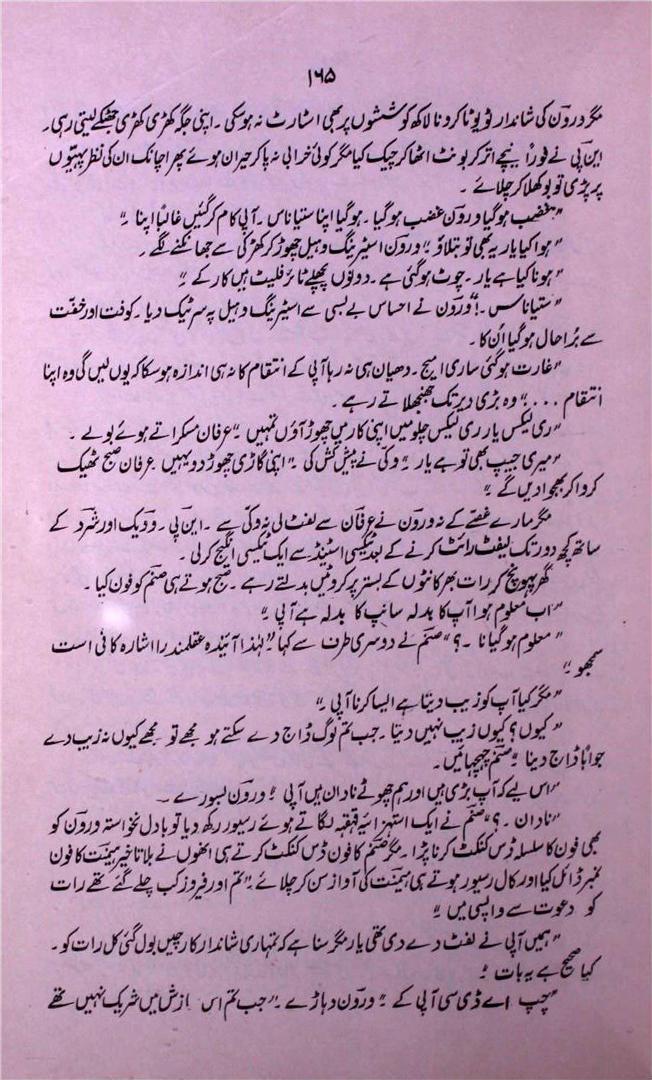 ۱۶۵
مگر درون کی شاندار ٹویوٹا کردنا لاکھ کوششوں پر بھی اسٹارٹ نہ ہوسکی ۔ اپنی جگہ کھڑی کھڑی جھٹکے لیتی رہی ۔
این پی نے فوراً نیچے اتر کر بونٹ اٹھا کر چیک کیا مگر کوئی خرابی نہ پا کر حیران ہوئے پھر اچانک ان کی نظر پہیوں
پر پڑی تو بوکھلا کر چلائے ۔
” غضب ہوگیا ورون غضب ہوگیا ۔ ہوگیا اپنا ستیاناس ۔ آپی کام کر گئیں غالباً اپنا ۔“
” ہوا کیا یار یہ بھی تو بتلاؤ “ ورون اسٹیرنگ وہیل چھوڑ کر کھڑکی سے جھانکنے لگے ۔
” ہونا کیا ہے یار ۔ چوٹ ہوگئی ہے ۔ دونوں پچھلے ٹائر فلیٹ ہیں کار کے “
” ستیاناس ۔! “ ورون نے احساس بے بسی سے اسٹیرنگ وہیل پہ سر ٹیک دیا ۔ کوفت اور خفت
سے بُرا حال ہوگیا اُن کا ۔
” غارت ہوگئی ساری امیج ۔ دھیان ہی نہ رہا آپی کے انتقام کا نہ ہی اندازہ ہوسکا کہ یوں لیں گی وہ اپنا
انتقام ۔۔۔ “ وہ بڑی دیر تک جھنجھلاتے رہے ۔
” ری لیکس یار ری لیکس چلو میں اپنی کار میں چھوڑ آؤں تمہیں “ عرفان مسکراتے ہوئے بولے ۔
” میری جیپ بھی تو ہے یار “ وکی نے پیش کش کی “ اپنی گاڑی چھوڑ دو یہیں عرفان صبح ٹھیک
کروا کر بھجوا دیں گے “
مگر مارے غصے کے نہ ورون نے عرفان سے لفٹ لی نہ وکی سے ۔ این پی ۔ وویک اور شرد کے
ساتھ کچھ دور تک لیفٹ رائٹ کرنے کے بعد ٹیکسی اسٹینڈ سے ایک ٹیکسی انگیج کرلی ۔
گھر پہونچ کر رات بھر کانٹوں کے بستر پر کروٹیں بدلتے رہے ۔ صبح ہوتے ہی صنم کو فون کیا ۔
” اب معلوم ہوا آپ کا بدلہ سانپ کا بدلہ ہے آپی “
” معلوم ہوگیا نا ۔؟ “ صنم نے دوسری طرف سے کہا “ لہٰذا آئیندہ عقلمند را اشارہ کافی است
سمجھو “
” مگر کیا آپ کو زیب دیتا ہے ایسا کرنا آپی ۔“
” کیوں؟ کیوں زیب نہیں دیتا ۔ جب تم لوگ ڈاج دے سکتے ہو مجھے تو مجھے کیوں نہ زیب دے
جواباً ڈاج دینا “ صنم چہچہائیں ۔
” اس لیے کہ آپ بڑی ہیں اور ہم چھوٹے نادان ہیں آپی “ ورون بسورے ۔
” نادان ۔؟ “ صنم نے ایک استہزائیہ قہقہہ لگاتے ہوئے رسیور رکھ دیا تو بادل نخواستہ ورون کو
بھی فون کا سلسلہ ڈس کنکٹ کرنا پڑا ۔ مگر صنم کا فون ڈس کنکٹ کرتے ہی انھوں نے بلا تاخیر ہیمنت کا فون
نمبر ڈائل کیا اور کال رسیور ہوتے ہی ہیمنت کی آواز سن کر چلائے “ تم اور فیروز کب چلے گئے تھے رات
کو دعوت سے واپسی میں “
” ہمیں آپی نے لفٹ دے دی تھی یار مگر سنا ہے کہ تمہاری شاندار کار چیں بول گئی کل رات کو ۔
کیا صحیح ہے یہ بات “
” چپ اے ڈی سی آپی کے “ ورون دہاڑے ۔ ” جب تم اس ازش میں شریک نہیں تھے